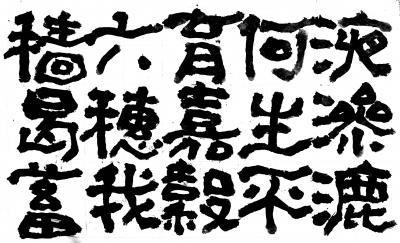 液滲漉
何生不
育嘉穀
六穗我
穡曷蓄